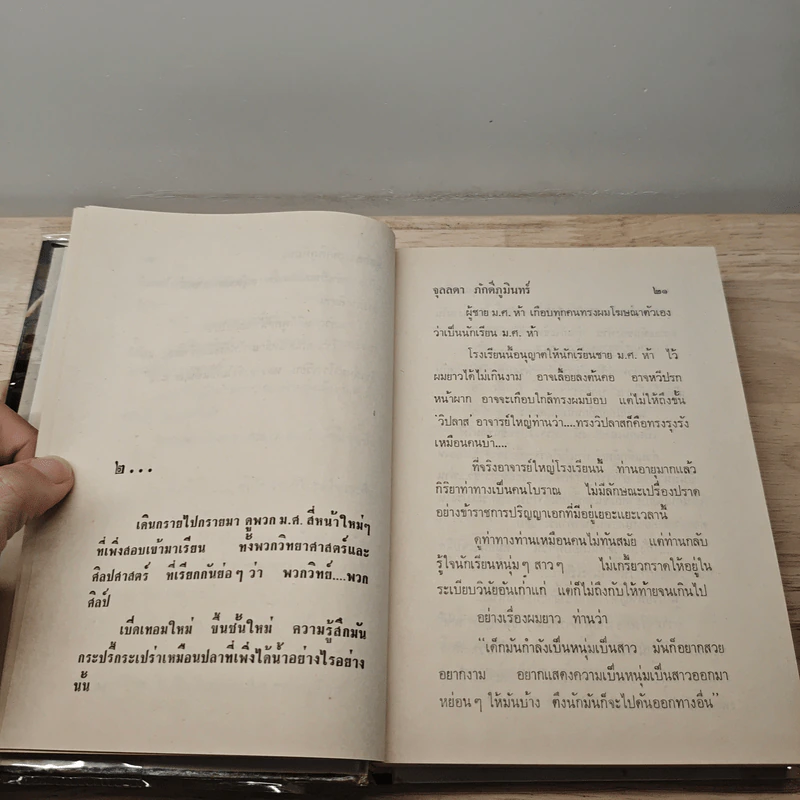 ๒...
เดินกรายไปกรายมา ดูพวก ม.ศ. สี่หน้าใหม่ๆ
ที่เพิ่งสอบเข้ามาเรียน ทั้งพวกวิทยาศาสตร์และ
ศิลปศาสตร์ ที่เรียกกันย่อๆ ว่า พวกวิทย์....พวก
ศิลป์
เปิดเทอมใหม่ ขึ้นชั้นใหม่ ความรู้สึกมัน
กระปรี้กระเปร่าเหมือนปลาที่เพิ่งได้น้ำอย่างไรอย่าง
นั้น
จุลลดา ภักดีภูมินทร์ ๒๑
ผู้ชาย ม.ศ. ห้า เกือบทุกคนทรงผมโฆษณาตัวเอง
ว่าเป็นนักเรียน ม.ศ. ห้า
โรงเรียนนี้อนุญาตให้นักเรียนชาย ม.ศ. ห้า ไว้
ผมยาวได้ไม่เกินงาม อาจเลื้อยลงต้นคอ อาจหวีปรก
หน้าผาก อาจจะเกือบใกล้ทรงผมบ๊อบ แต่ไม่ให้ถึงขั้น
'วิปลาส' อาจารย์ใหญ่ท่านว่า....ทรงวิปลาสก็คือทรงรุงรัง
เหมือนคนบ้า....
ที่จริงอาจารย์ใหญ่โรงเรียนนี้ ท่านอายุมากแล้ว
กิริยาท่าทางเป็นคนโบราณ ไม่มีลักษณะเปรื่องปราด
อย่างข้าราชการปริญญาเอกที่มีอยู่เยอะแยะเวลานี้
ดูท่าทางท่านเหมือนคนไม่ทันสมัย แต่ท่านกลับ
รู้ใจนักเรียนหนุ่มๆ สาวๆ ไม่เกรี้ยวกราดให้อยู่ใน
ระเบียบวินัยอันเก่าแก่ แต่ก็ไม่ถึงกับให้ท้ายจนเกินไป
อย่างเรื่องผมยาว ท่านว่า
"เด็กมันกำลังเป็นหนุ่มเป็นสาว มันก็อยากสวย
อยากงาม อยากแสดงความเป็นหนุ่มเป็นสาวออกมา
หย่อนๆ ให้มันบ้าง ตึงนักมันก็จะไปดันออกทางอื่น"